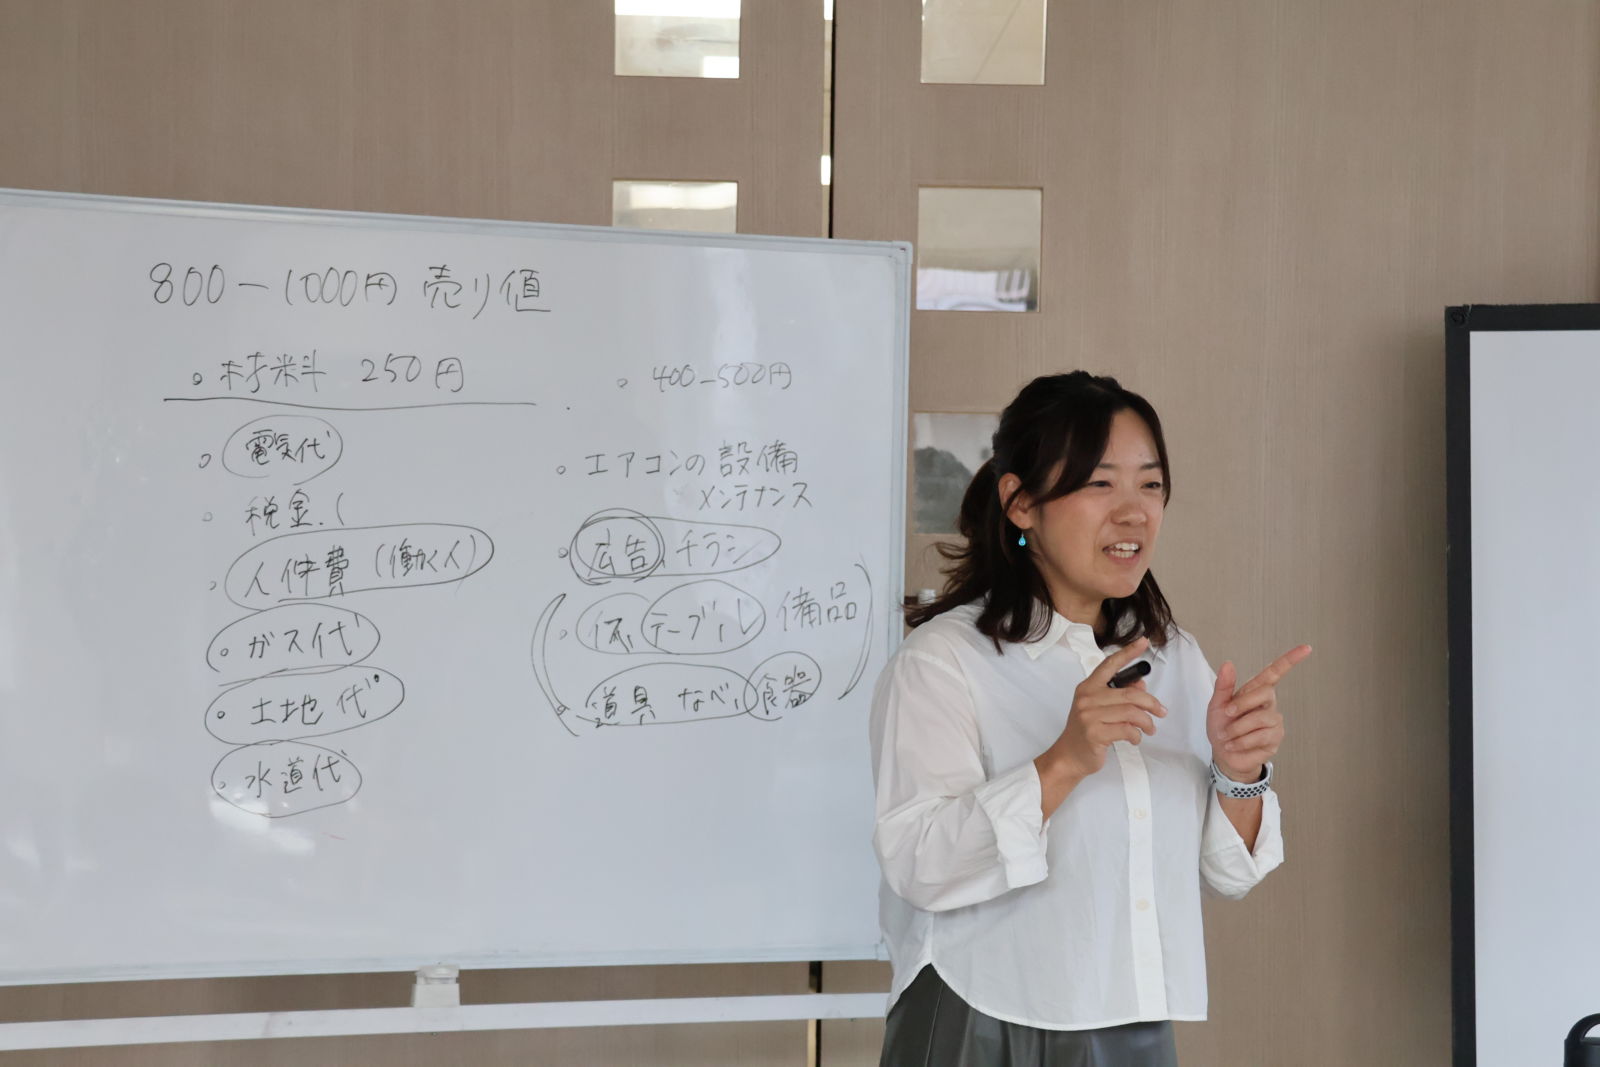 800-1000円 売り値
。材料 250円
。電気代
。税金.(
。人件費(働く人)
。ガス代
。土地代
。水道代
。400-500円
。エアコンの設備
メンテナンス
。広告、チラシ
テーブル 備品
。道具 なべ、食器